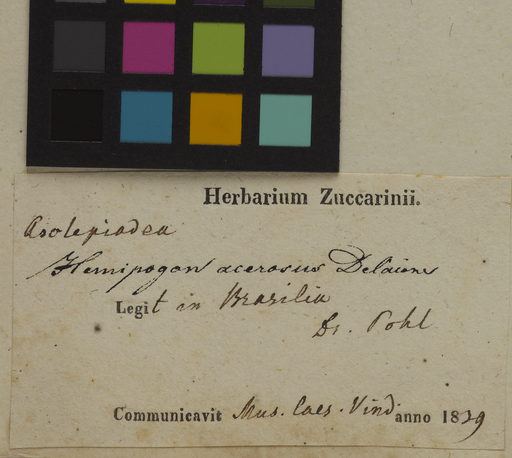 Herbarium Zuccarinii.
Asclepiadea
Hemipogon acerosus Decaisne
Legit in Brasilia
Dr. Pohl
Communicavit Mus. Caes. Vind anno 1839